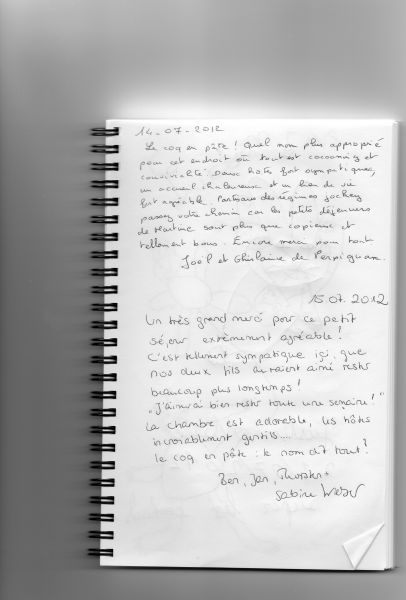 14-07-2012
Le coq en pâte ! Quel nom plus approprié
pour cet endroit où tout est cocooning et
convivialité. Deux hôtes fort sympathiques,
un accueil chaleureux et un lieu de vie
fort agréable. Partisans des régimes jockey
passez votre chemin car les petits déjeuners
de Martine sont plus que copieux et
tellement bons. Encore merci pour tout
Joël et Ghislaine de Perpignan.
15.07.2012
Un très grand merci pour ce petit
séjour extrêmement agréable !
C'est tellement sympatique içi, que
nos deux fils auraient aimé rester
beaucoup plus longtemps !
„J'aimerai bien rester toute une semaine !"
La chambre est adorable, les hôtes
incroyablement gentils....
le coq en pâte : le nom dit tout !
Ben, Jan, Thorsten +
Sabine